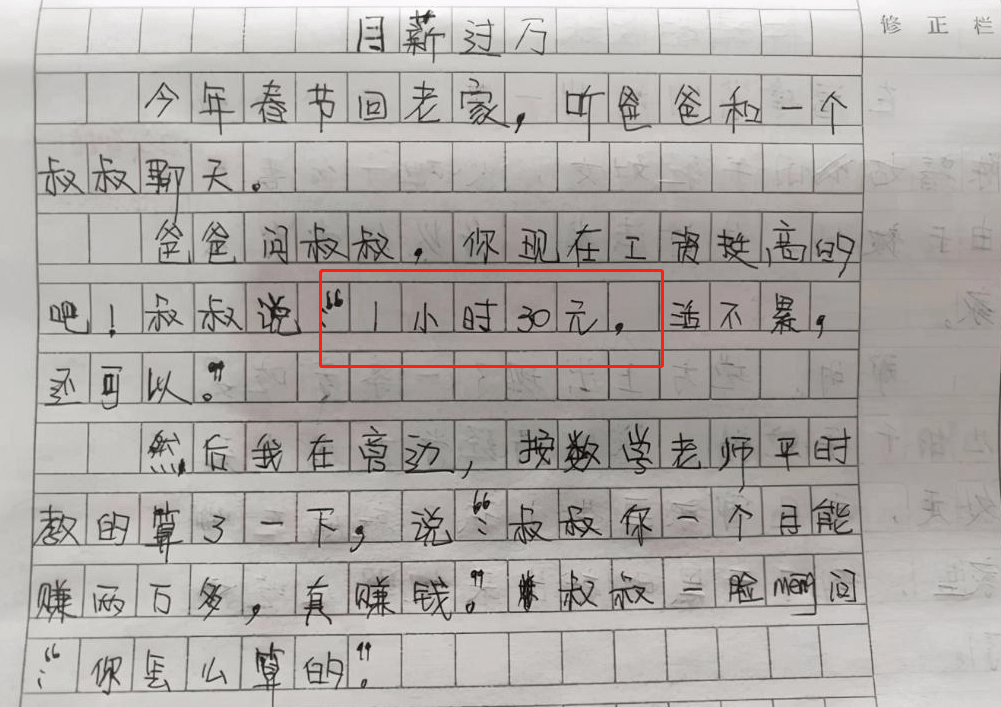 修正栏
月薪过万
今年春节回老家，听爸爸和一个
叔叔聊天。
爸爸问叔叔，你现在工资挺高的
吧！叔叔说：“1小时30元，活不累，
还可以。”
然后我在旁边，按数学老师平时
教的算了一下，说：“叔叔你一个月能
赚两万多，真赚钱。”叔叔一脸meng问
：“你怎么算的”。